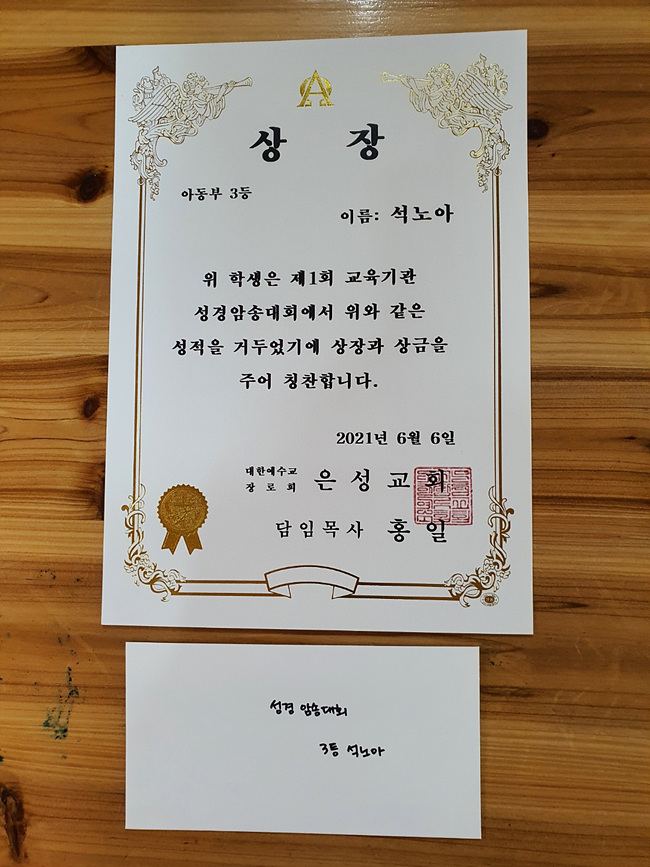 상 장
아동부 3등
이름: 석노아
위 학생은 제1회 교육기관
성경암송대회에서 위와 같은
성적을 거두었기에 상장과 상금을
주어 칭찬합니다.
2021년 6월 6일
대한예수교
장로회 은성교회
담임목사 홍일
성경 암송대회
3등 석노아